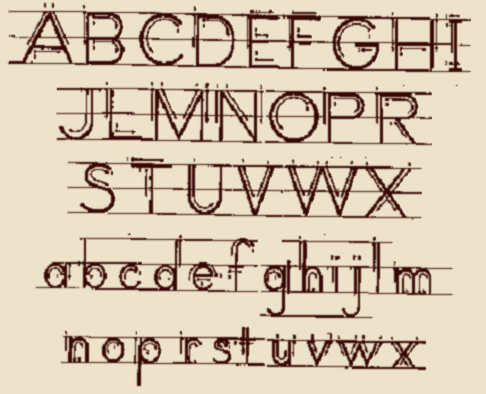 ABCDEFGHI
JLMNOPR
STUVWX
abcdefghijlm
noprstuvwx